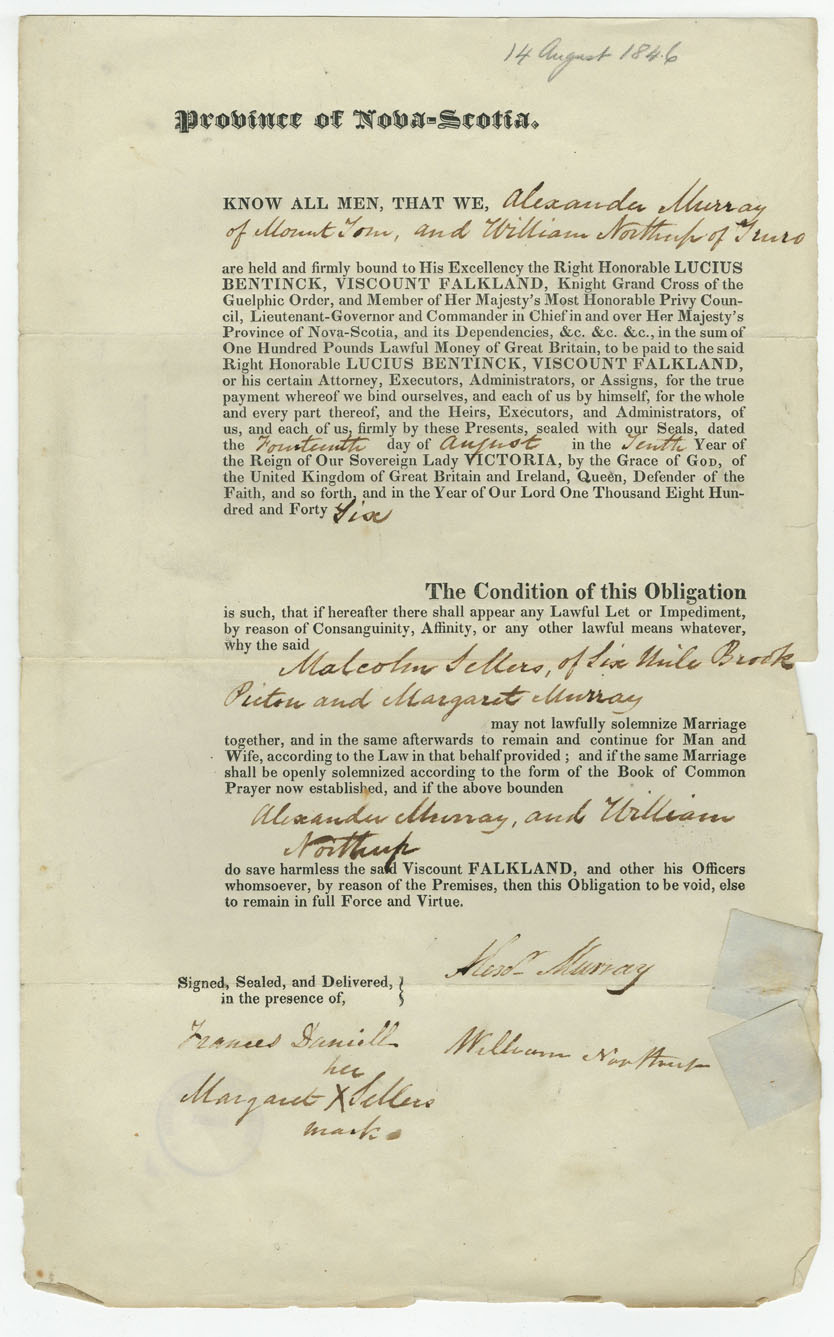 14 August 1846
Province of Nova-Scotia.
KNOW ALL MEN, THAT WE, Alexander Murray
of Mount Tom, and William Northup of Truro
are held and firmly bound to His Excellency the Right Honorable LUCIUS
BENTINCK, VISCOUNT FALKLAND, Knight Grand Cross of the
Guelphic Order, and Member of Her Majesty's Most Honorable Privy Coun-
cil, Lieutenant-Governor and Commander in Chief in and over Her Majesty's
Province of Nova-Scotia, and its Dependencies, &c. &c. &c., in the sum of
One Hundred Pounds Lawful Money of Great Britain, to be paid to the said
Right Honorable LUCIUS BENTINCK, VISCOUNT FALKLAND,
or his certain Attorney, Executors, Administrators, or Assigns, for the true
payment whereof we bind ourselves, and each of us by himself, for the whole
and every part thereof, and the Heirs, Executors, and Administrators, of
us, and each of us, firmly by these Presents, sealed with our Seals, dated
the Fourteenth day of August in the Tenth Year of
the Reign of Our Sovereign Lady VICTORIA, by the Grace of GOD, of
the United Kingdom of Great Britain and Ireland, Queen, Defender of the
Faith, and so forth, and in the Year of Our Lord One Thousand Eight Hun-
dred and Forty Six
The Condition of this Obligation
is such, that if hereafter there shall appear any Lawful Let or Impediment,
by reason of Consanguinity, Affinity, or any other lawful means whatever,
why the said
Malcolm Sellers, of Six Mile Brook
Pictou and Margaret Murray
may not lawfully solemnize Marriage
together, and in the same afterwards to remain and continue for Man and
Wife, according to the Law in that behalf provided ; and if the same Marriage
shall be openly solemnized according to the form of the Book of Common
Prayer now established, and if the above bounden
Alexander Murray, and William
Northup
do save harmless the said Viscount FALKLAND, and other his Officers
whomsoever, by reason of the Premises, then this Obligation to be void, else
to remain in full Force and Virtue.
Alexdr Murray
Signed, Sealed, and Delivered, }
in the presence of,
Frances Daniell
William Northup
her
Margaret X Sellers
mark